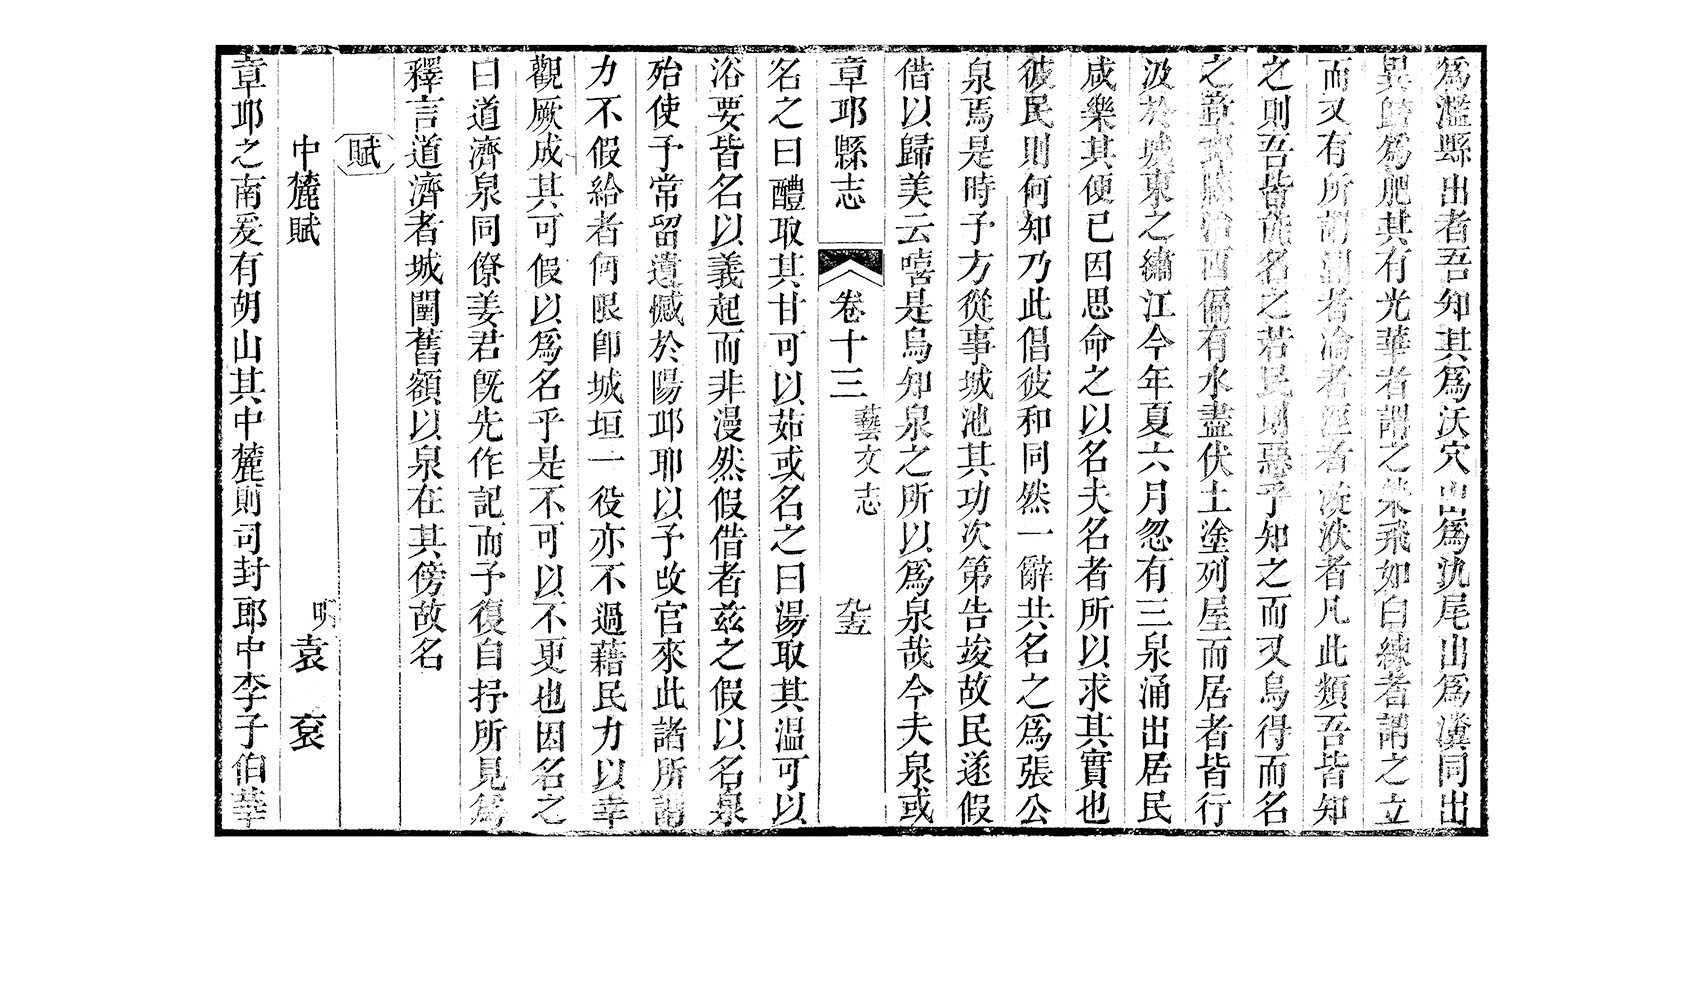 爲濫縣出者吾知其爲沃穴出爲氿尾出爲瀵同出
異歸爲肥其有光華者謂之榮飛如白練者謂之立
而又有所謂瀾者淪者涇者漩洑者凡此類吾皆知
之則吾皆能名之若民則惡乎知之而又烏得而名
之章邱縣治西偏有水盡伏土塗列屋而居者皆行
汲於城東之繡江今年夏六月忽有三泉涌出居民
咸樂其便已因思命之以名夫名者所以求其實也
彼民則何知乃此倡彼和同然一辭共名之爲張公
泉焉是時予方從事城池其功次第告竣故民遂假
借以歸美云嘻是烏知泉之所以爲泉哉今夫泉或
章邱縣志 卷十三 藝文志
名之曰醴取其甘可以茹或名之曰湯取其溫可以
浴要皆名以義起而非漫然假借者兹之假以名泉
殆使予常留遺憾於陽邱耶以予改官來此諸所謂
力不假給者何限卽城垣一役亦不過藉民力以幸
觀厥成其可假以爲名乎是不可以不更也因名之
曰道濟泉同僚姜君旣先作記而予復自抒所見爲
釋言道濟者城闉舊額以泉在其傍故名
賦
中麓賦 明 袁袞
章邱之南爰有胡山其中麓則司封郎中李子伯華